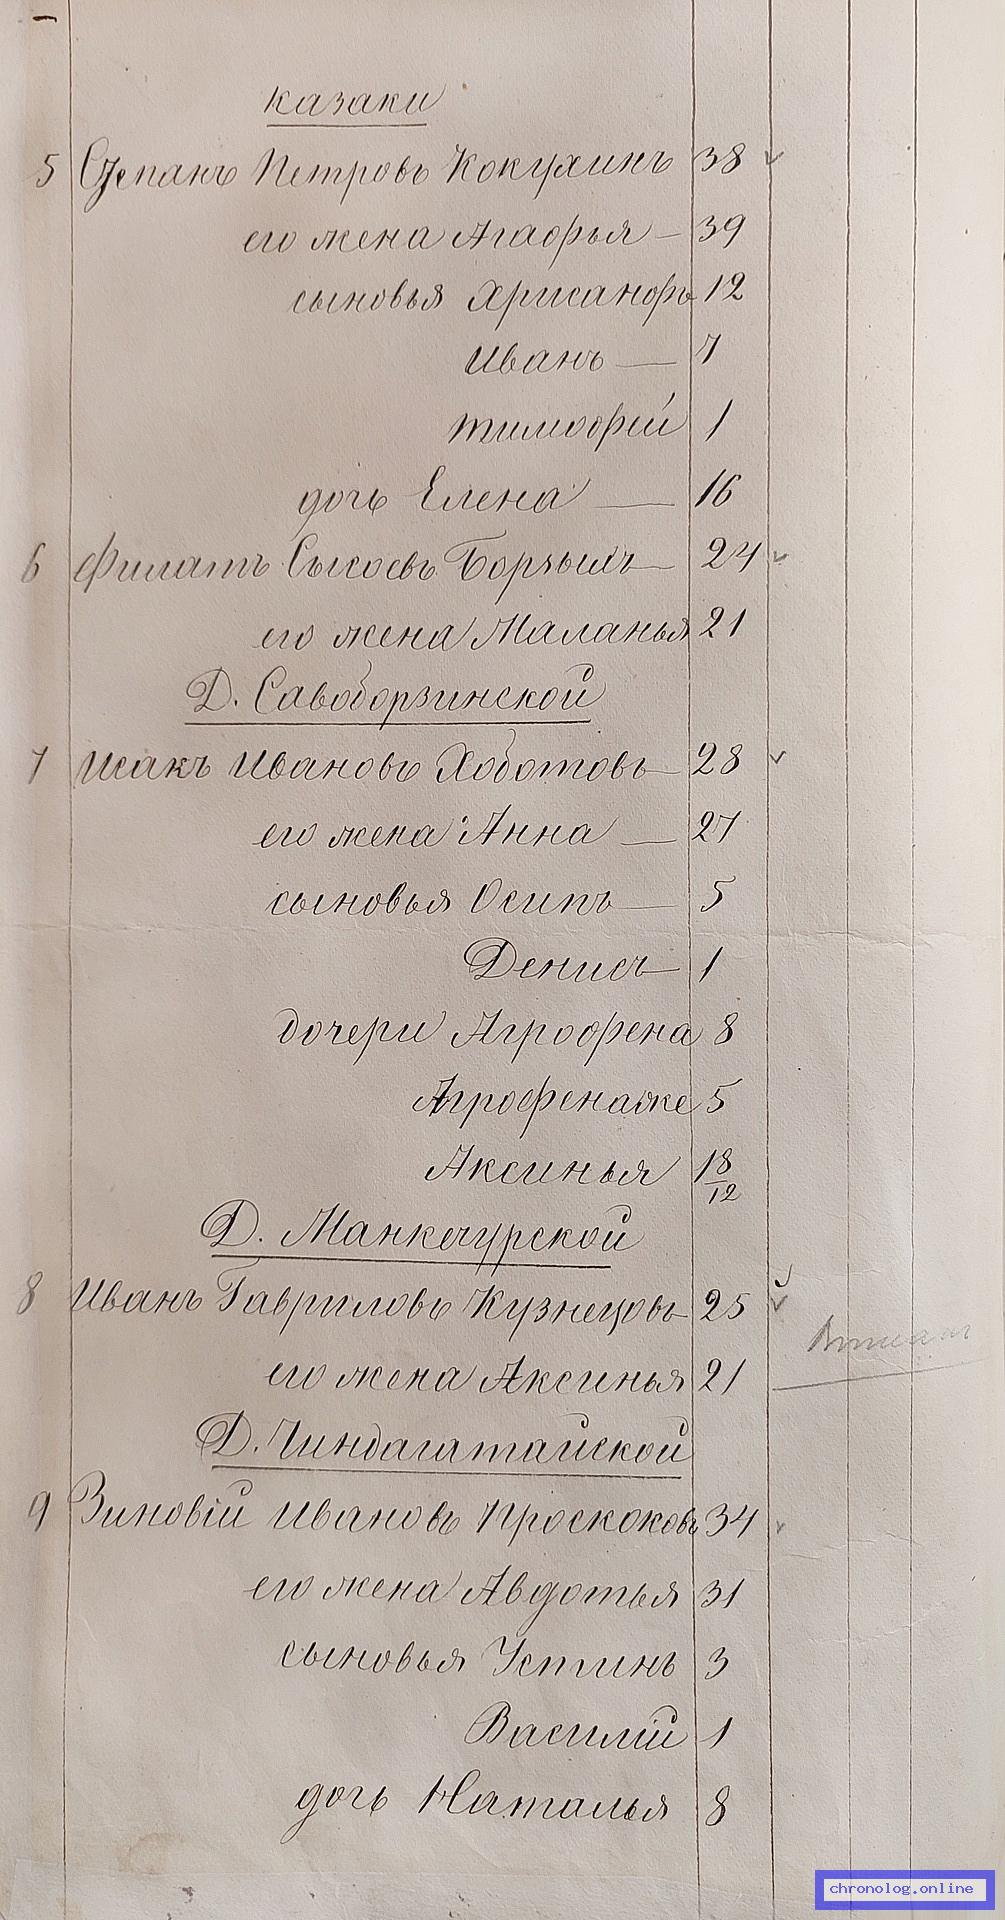 казаки
5 Степанъ Петровъ Кокухинъ 38
его жена Агафья — 39
сыновья Хрисанфъ 12
Иванъ — 7
Тимофей 1
дочь Елена — 16
6 Филатъ Сысоевъ Борзыхъ — 24
его жена Маланья 21
Д. Савоборзинской
7 Исакъ Ивановъ Хоботовъ — 28
его жена Анна — 27
сыновья Осипъ — 5
Денисъ — 1
дочери Агрофена 8
Агрофена же 5
Аксинья 18/12
Д. Манкечурской
8 Иванъ Гавриловъ Кузнецовъ 25
его жена Аксинья 21
Д. Чиндагатайской
9 Зиновій Ивановъ Проскоковъ 34
его жена Авдотья 31
сыновья Устинъ 3
Василій 1
дочь Наталья 8
chronolog.online